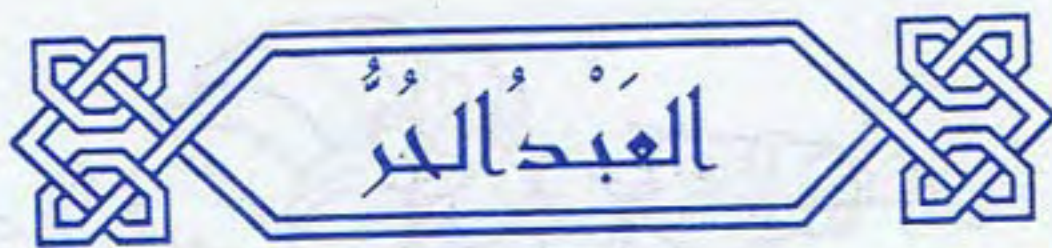 العَبْدُ الحُرُّ